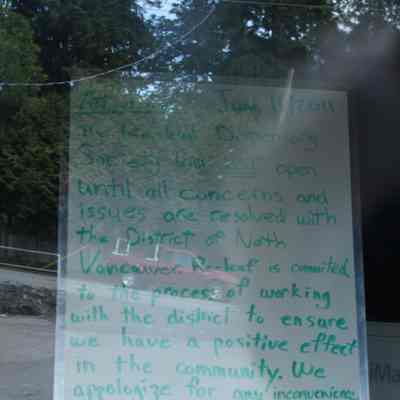 June 11/2011
Dispensary
Society will not open
until all concerns and
issues are resolved with
the District of North
Vancouver. Re-leaf is commited
to the process of working
with the district to ensure
we have a positive effect
in the community. We
appologize for any inconvenience
iMa